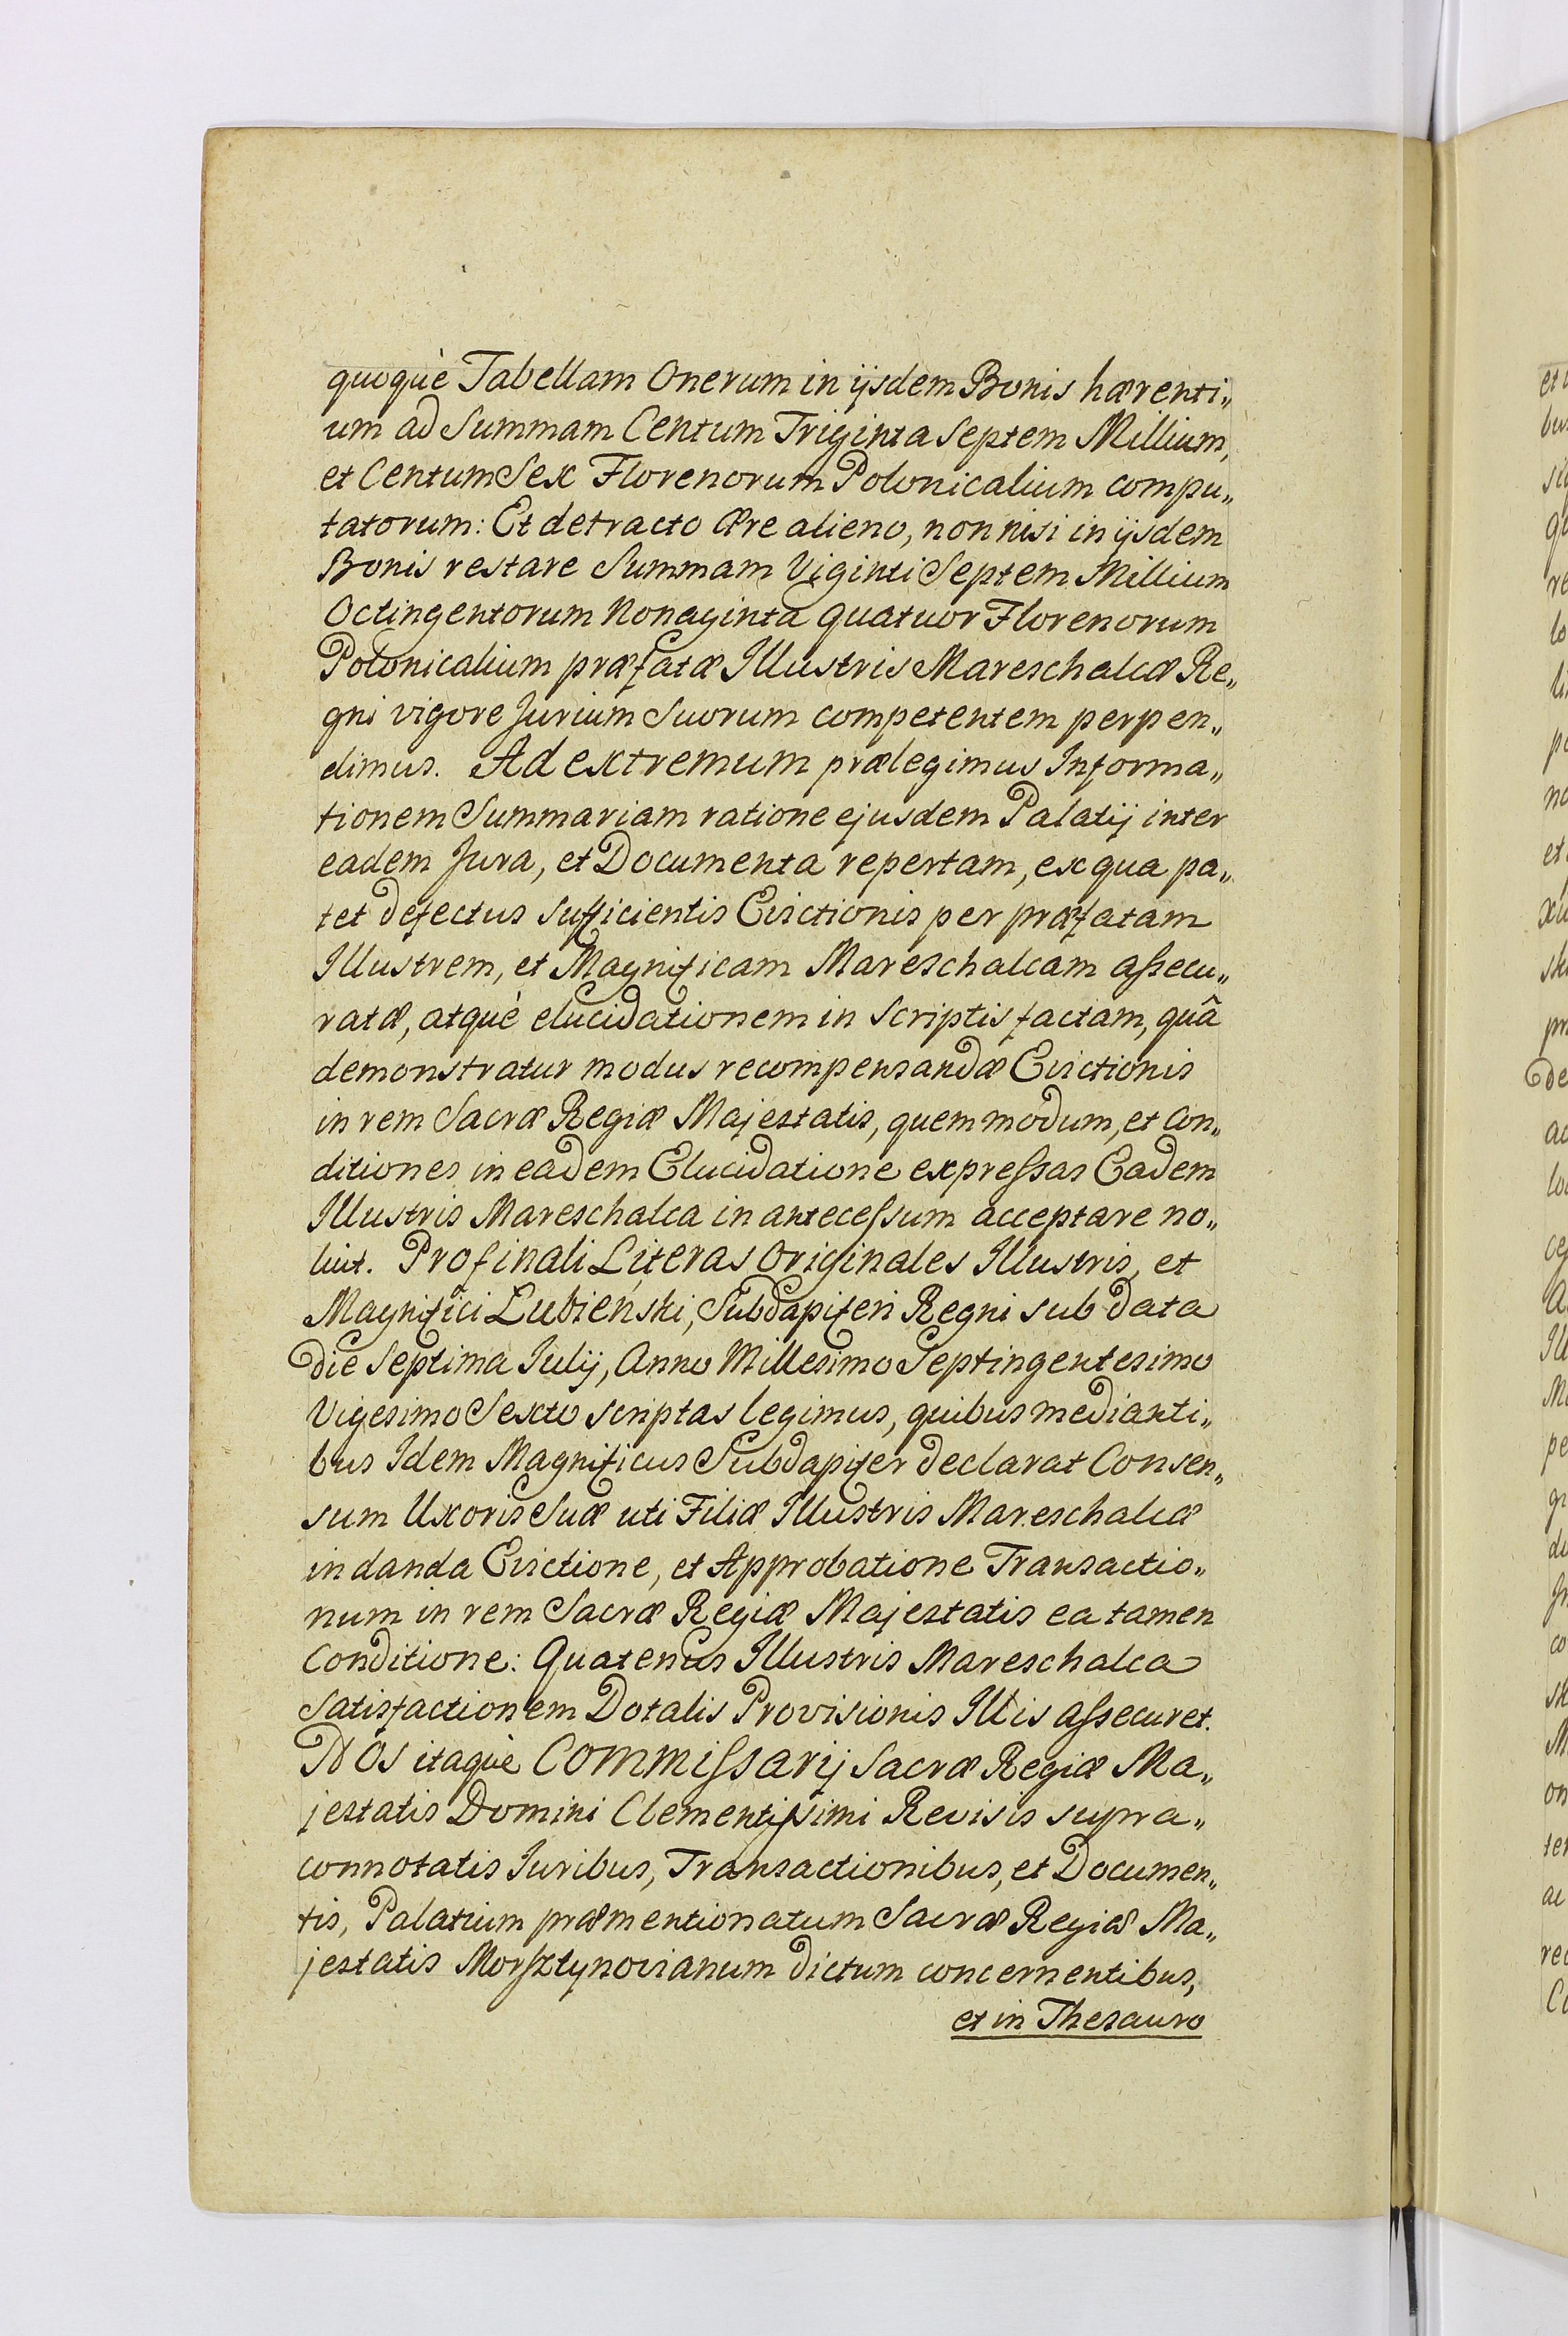 quoquè Tabellam Onerum in ijsdem Bonis hærenti„
um ad Summam Centum Triginta Septem Millium,
et Centum Sex Florenorum Polonicalium compu„
tatorum: Et detracto Ære alieno, non nisi in ijsdem
Bonis restare Summam Viginti Septem Millium
Octingentorum Nonaginta quatuor Florenorum
Polonicalium præfatæ Illustris Mareschalcæ Re„
gni vigore Jurium Suorum competentem perpen„
dimus. Ad extremum prælegimus Informa„
tionem Summariam ratione ejusdem Palatij inter
eadem Jura, et Documenta repertam, ex qua pa„
tet defectus sufficientis Evictionis per præfatam
Illustrem, et Magnificam Mareschalcam aſsecu„
ratæ, atquè elucidationem in Scriptis factam, quâ
demonstratur modus recompensandæ Evictionis
in rem Sacræ Regiæ Majestatis, quem modum, et Con„
ditiones in eadem Elucidatione expreſsas Eadem
Illustris Mareschalca in anteceſsum acceptare no„
luit. Pro finali Literas Originales Illustris, et
Magnifici Łubieński, Subdapiferi Regni sub data
die Septima Julij, Anno Millesimo Septingentesimo
Vigesimo Sexto scriptas legimus, quibus medianti„
bus Idem Magnificus Subdapifer declarat Consen„
sum Uxoris Suæ uti Filiæ Illustris Mareschalcæ
in danda Evictione, et Approbatione Transactio„
num in rem Sacræ Regiæ Majestatis ea tamen
Conditione: Quatenus Illustris Mareschalca
Satisfactionem Dotalis Provisionis Illis aſsecuret.
NOs itaquè Commiſsarij Sacræ Regiæ Ma„
jestatis Domini Clementiſsimi Revisis supra„
connotatis Juribus, Transactionibus, et Documen„
tis, Palatium præmentionatum Sacræ Regiæ Ma„
jestatis Morſztynovianum dictum concernentibus,
et in Thesauro